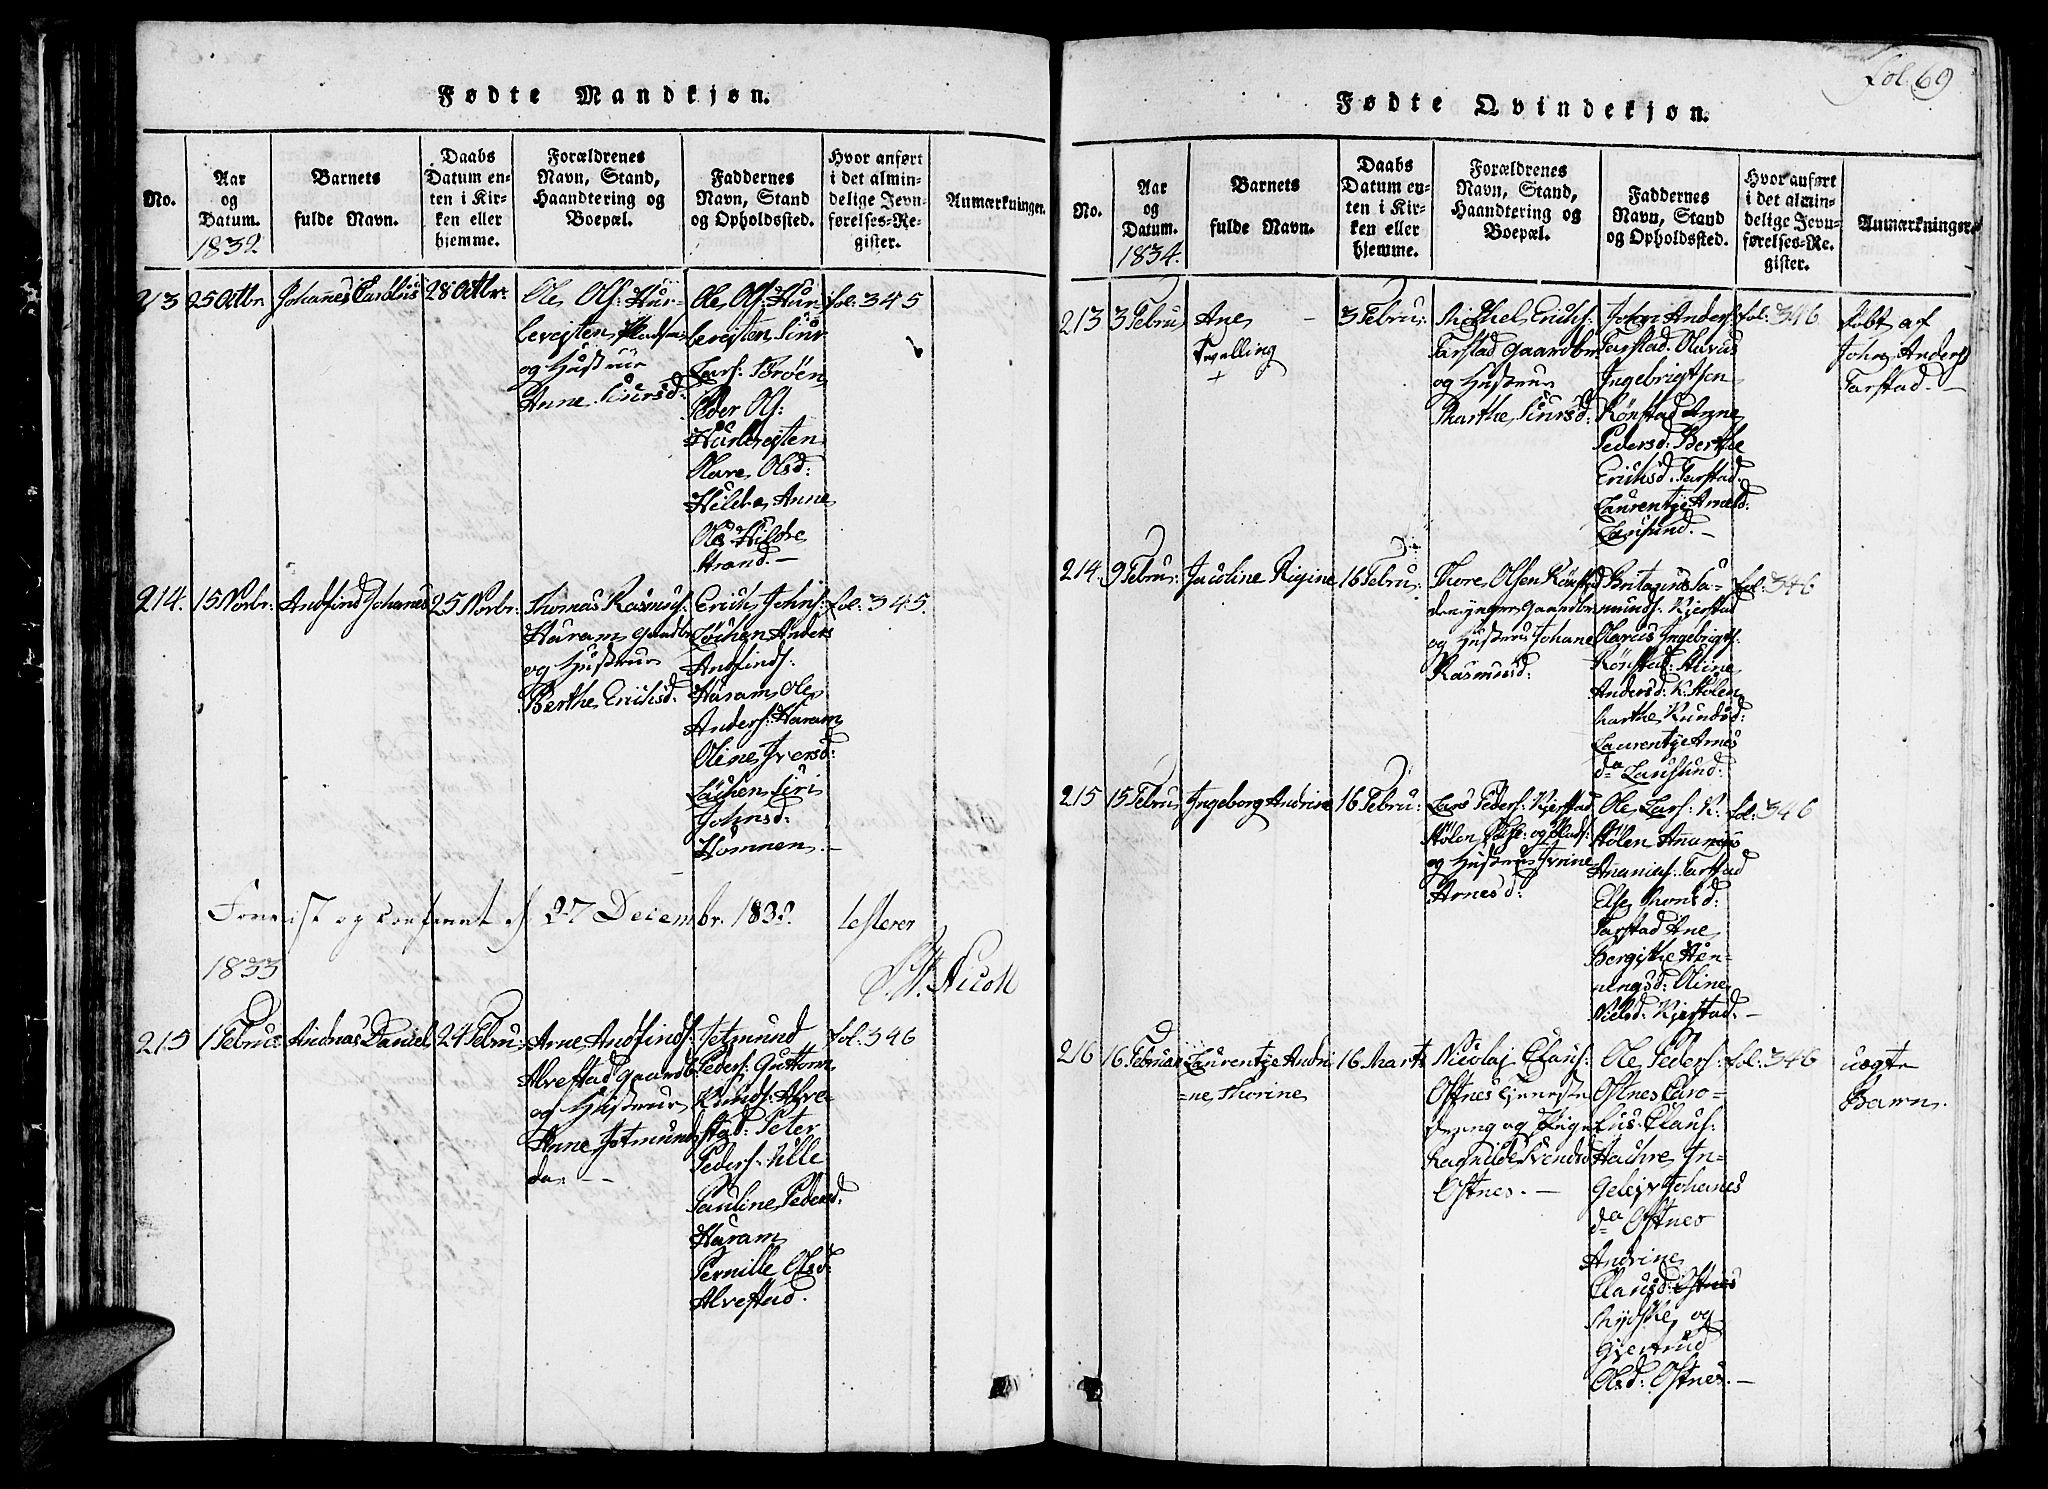 Fødte Mandkjøn.
No.
Aar
og
Datum.
1832
Barnets
fulde Navn.
Daabs
Datum en-
ten i Kir-
ken eller
hjemme.
Forældrenes
Navn, Stand,
Haandtering og
Boepæl.
Faddernes
Navn, Stand
og Opholdssted.
Hvor anført
i det almin-
delige Jevn-
førelses-Re-
gister.
Anmærkninger.
213
25 Octbr
Johannes Carolus
28 Octbr:
Ole Ols: Hur-
levejsten
og Hustrue
Anne Siursd:
Ole Ols: Hur
levejsten Siur
Lars: Brøen
Peder Ols:
Hurlevejsten
Olave Olsd:
Hildre Anne
Ols Hildre
strand. —
fol: 345
214.
15 Novbr:
Andfind Johanes
25 Novbr:
Thomas Rasmus:
Haram gaardbr
og Hustrue
Berthe Erichsd.
Erich Johns:
Løchen Anders
Andfinds:
Haram Ole
Anders: Haram
Oline Iversd:
Løchen Siri
Johnsd:
Hamnen. —
fol: 345.
27 Decembr. 1832. testerer
1833
215
1 Februar
Andreas Daniel
24 Febru:
Arne Andfinds:
Alvestad gaardb:
og Hustrue
Anne Jetmunds
da. — —
Jetmund
Peders: Guttorm
Knuds: Alve-
stad: Peter
Peders: Ulle
Pauline Pedersd:
Haram
Pernille Olsd:
Alvestad.
fol: 346
Fol. 69
Fødte Qvindekjøn.
No.
Aar
og
Datum.
1834.
Barnets
fulde Navn.
Daabs
Datum en-
ten i Kir-
ken eller
hjemme.
Forældrenes
Navn, Stand,
Haandtering og
Boepæl.
Faddernes
Navn, Stand
og Opholdssted.
Hvor anført
i det almin-
delige Jevn-
førelses-Re-
gister.
Anmærkninger.
213
3 Febru
Ane —
Tvælling
+
3 Febru:
Michel Erichs:
Farstad gaardbr
og Hustrue
Marthe Siursd:
John Anders:
Farstad. Olavus
Ingebrigtsen
Rönstad Anne
Pedersd: Berthe
Erichsd. Farstad.
Laurentje Arnesd:
Lausund. —
fol: 346
døbt af
John Anders
Farstad. —
214.
9 Febru:
Jacoline Rigine
16 Febru:
Thore Olsen Rönstad
den yngre gaardbr
og Hustrue Johane
Rasmusd:
munds: Kjerstad
Olavus Ingebrigts:
Rönstad: Stine
Andersd: K: Stölen
Marthe Knudsd:
Laurentje Arnes
da Lausund:
fol: 346
215
15 Febru
Ingeborg Andrine
16 Febru:
Lars Peders: Kjerstad
Stölen
og Hustrue Ivrine
Arnesd:
Ole Lars: K:
Stölen Ananias
Ananias: Farstad
Else Monsd:
Farstad Ane
Bergithe Hen-
ningsd: Oline
Nielsd. Kjerstad. —
fol: 346
216
16 Februar
Laurentje Andri
=ne Thorine
16 Marts
Nicolaj Claus:
Ostnes tjeneste
dreng og Pige
Ragnilde Svendsd
Ostnes. —
Ole Peders:
Ostnes Caro-
lus: Claus:
Hachre In-
gelejv Johanes
da Ostnes
Andrine
Clausd: Ostnes
Mydske og
Gjertrud
Olsd: Ostnes. —
fol: 346
uægte
Barn.